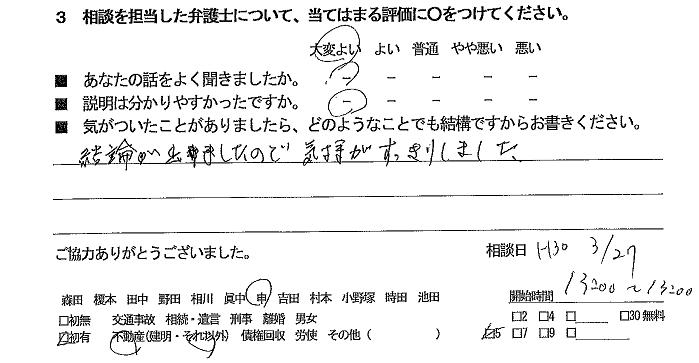 3 相談を担当した弁護士について、当てはまる評価に○をつけてください。
大変よい よい 普通 やや悪い 悪い
■ あなたの話をよく聞きましたか。 － － － － －
■ 説明は分かりやすかったですか。 － － － － －
■ 気がついたことがありましたら、どのようなことでも結構ですからお書きください。
結論が出ましたので気持がすっきりしました
ご協力ありがとうございました。
相談日 H30 3/27
森田 榎本 田中 野田 相川 眞中 申 吉田 村本 小野塚 時田 池田
開始時間 13:00~13:00
□初無 交通事故 相続・遺言 刑事 離婚 男女 □2 □4 □ □30無料
☑初有 不動産(建明・それ以外) 債権回収 労使 その他( ) ☑5 □7 □9 □